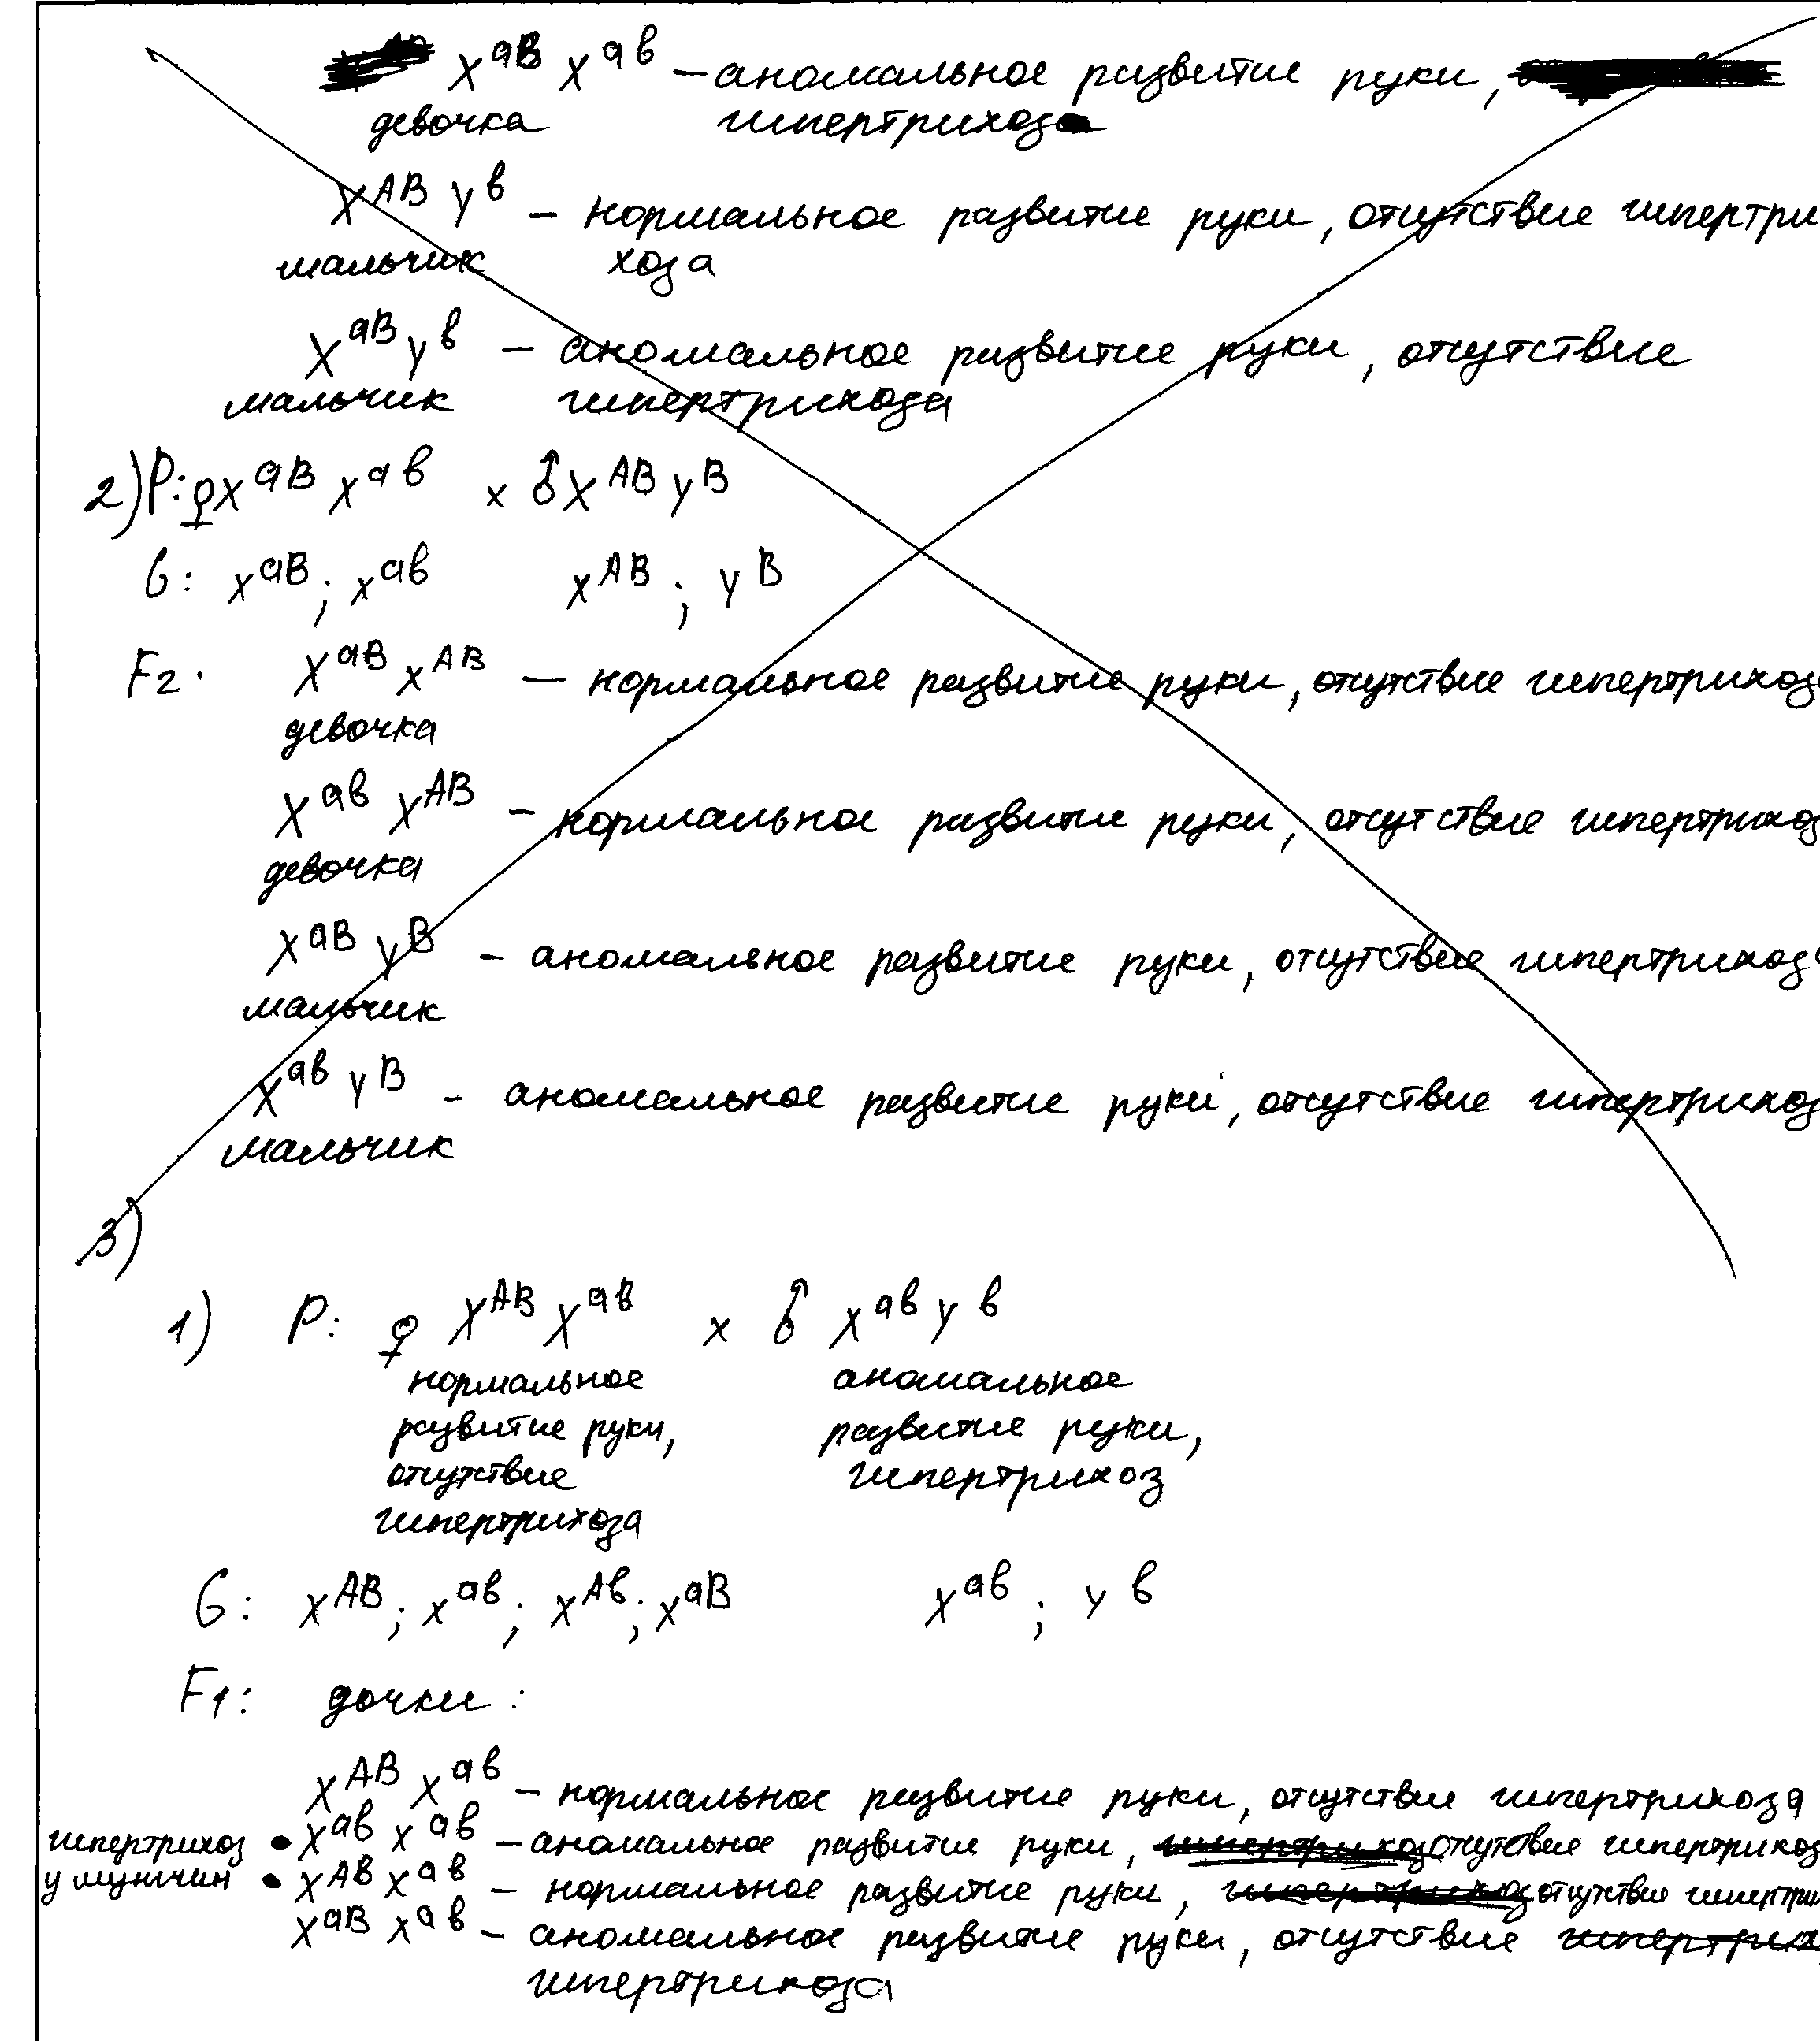 X^aB X^aв – аномальное развитие руки,
девочка гипертрихоз
X^AB У^в – нормальное развитие руки, отсутствие гипертри
мальчик хоза
X^aB У^в – аномальное развитие руки, отсутствие
мальчик гипертрихоза
2) P: ♀ X^aB X^aв × ♂ X^AB У^B
G: X^aB; X^aв X^AB; У^B
F2. X^aB X^AB — нормальное развитие руки, отсутствие гипертрихоза
девочка
X^aв X^AB – нормальное развитие руки, отсутствие гипертрихоз
девочка
X^aB У^B – аномальное развитие руки, отсутствие гипертрихоза
мальчик
X^aв У^B – аномальное развитие руки, отсутствие гипертрихоз
мальчик
3)
1) P: ♀ X^AB X^aв × ♂ X^aв У^в
нормальное аномальное
развитие руки, развитие руки,
отсутствие гипертрихоз
гипертрихоза
G: X^AB; X^aв; X^Aв; X^aB X^aв; У^в
F1: дочки:
X^AB X^aв – нормальное развитие руки, отсутствие гипертрихоза
гипертрихоз • X^aв X^aв – аномальное развитие руки, гипертрихоз отсутствие гипертрихоз
у мужчин • X^Aв X^aв – нормальное развитие руки, гипертрихоз отсутствие гипертри
X^aB X^aв – аномальное развитие руки, отсутствие гипертрих
гипертрихоза